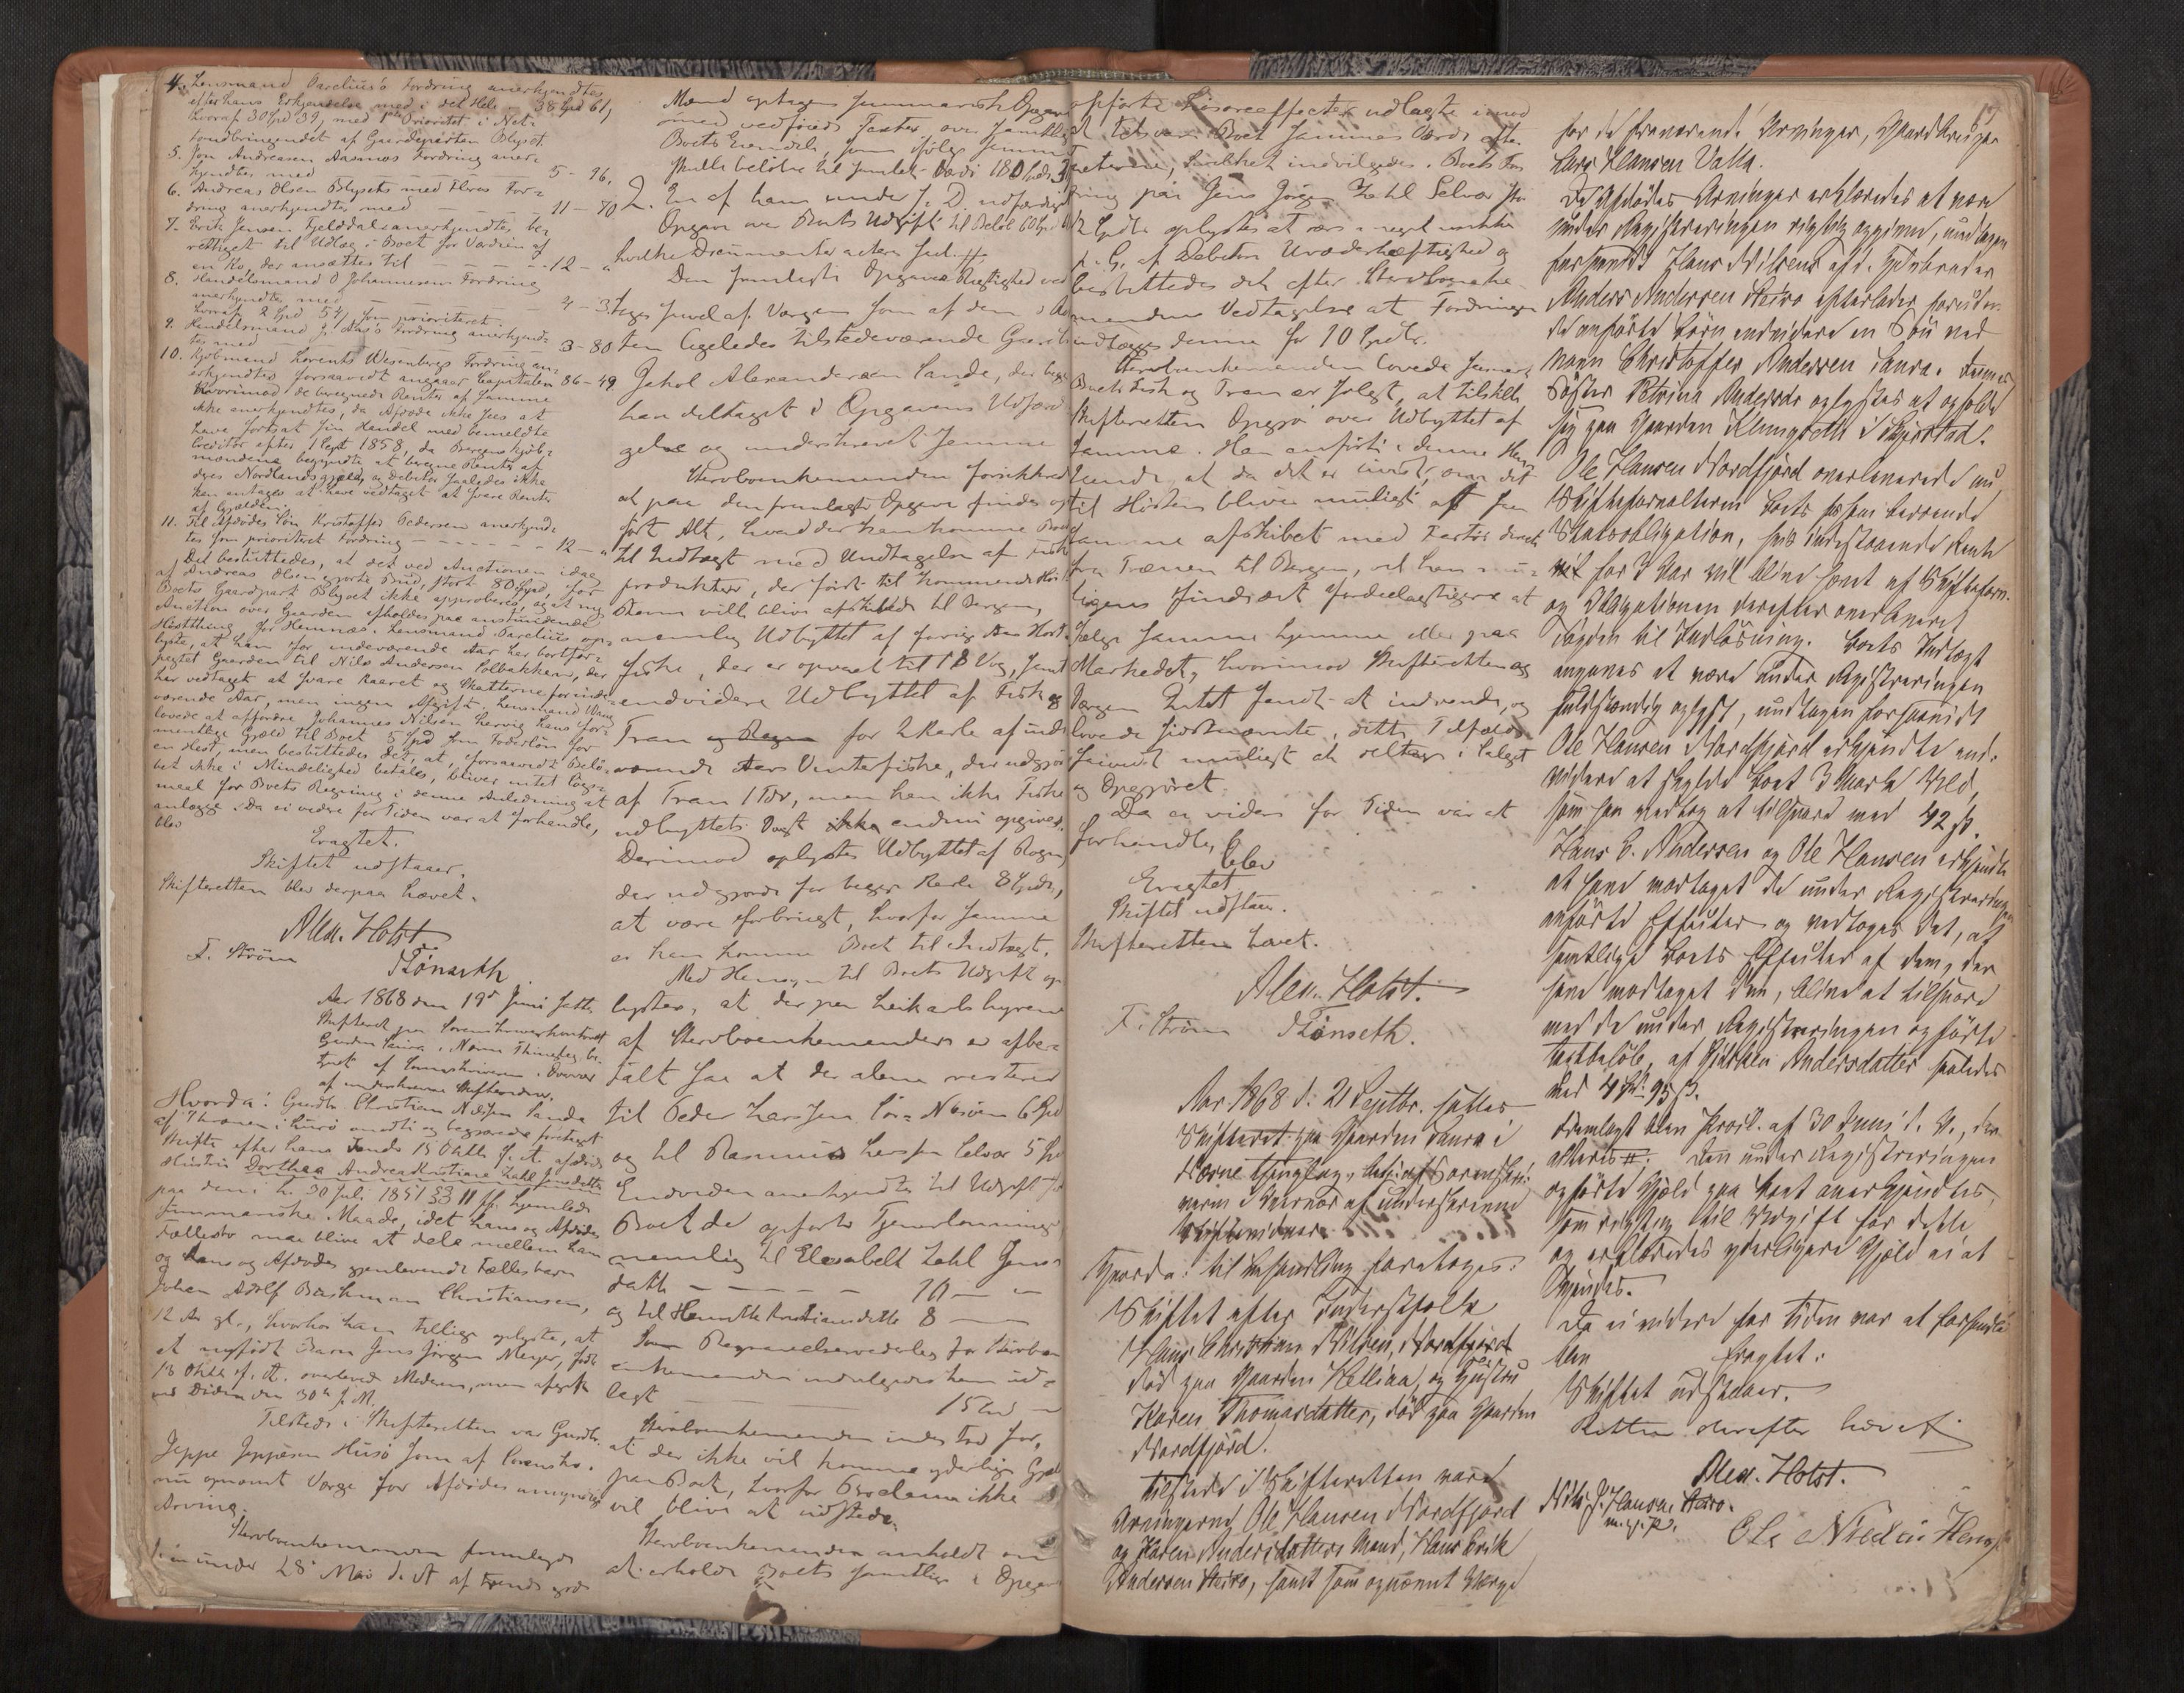 4. Lensmand Parelius's Fordring anerkjendtes
efter hans Erkjendelse med i det Hele - 38 Spd 61,
hvoraf 30 Spd 39, med 1ste Prioritet i Net-
toudbringendet af Gaardeparten Blysæt.
5. Jon Andreasen Aasmos Fordring aner-
kjendtes med 5 - 96.
6. Andreas Olsen Blysæts med Fleres For-
dring anerkjendtes med - - - 11 - 70
7. Erik Jensen Fjelddals anerkjendtes be-
rettiget til Udlæg i Boet for Værdien af
en Ko, der ansættes til - - - 12 - "
8. Handelsmand O Johannesens Fordring
anerkjendtes med - - - 4 - 3.
hvoraf 2 Spd 54, som prioriteret.
9. Handelsmand J. Aasø Fordring anerkjend-
tes med - - - 3 - 80
10. Kjøbmand Lorents Wesenbergs Fordring an-
erkjendtes forsaavidt angaaer Capitalen 86 - 49
hvorimod de beregnede Renter af samme
ikke anerkjendtes, da Afdøde ikke sees at
have fortsat sin Handel med bemeldte
Creditor efter 1 Sept 1858, da Bergens Kjøb-
mændene begyndte at beregne Renter af
deres Nordlandsgjæld, og Debitor saaledes ikke
kan antages at have vedtaget at svare Rente
af Gjælden.
11. Til Afdødes Søn Kristoffer Pedersen anerkjend-
tes som prioriteret Fordring - - - 12 - "
Det besluttedes, at det ved Auctionen idag
af Andreas Olsen gjorte Bud, stort 80 Spd, for
Boets Gaardpart Blysæt ikke approberes, og at ny
Auction over Gaarden afholdes paa anstundende
Høstthing for Hemnæs. Lensmand Parelius op-
lyste, at han for indeværende Aar har bortfor-
pagtet Gaarden til Nils Andersen Solbakken, der
har vedtaget at svare Kaaret og Skatterne for inde-
værende Aar, men ingen Afgift. Lensmand
lovede at affordre Johannes Nilsen Lervig hans for-
mentlige Gjæld til Boet 5 Spd som Foderløn for
en Hest, men besluttedes det, at, forsaavidt Belø-
bet ikke i Mindelighed betales, bliver intet Søgs-
maal for Boets Regning i denne Anledning at
anlægge. Da ei videre for Tiden var at forhandle,
blev
Eragtet.
Skiftet udstaaer.
Skifteretten blev derpaa hævet.
Alex. Holst
F. Strøm Tönseth.
Aar 1868 den 19de Juni sattes
Skifteret paa Sorenskriverkontoret
Gaarden Saura i Næsne Thinglag be-
tjent af Sorenskriveren i Overvær
af underskrevne Skiftevidner.
Hvorda: Gaardbr. Christian Nielsen Sanda
af Thrænen i Lurø anmeldte og begjærede foretaget
Skifte efter hans den 15 Oktbr f. A. afdøde
Hustru Dorthea Andrea Kristiane Zahl Jensdatter
paa den i L. 30 Juli 1851 §§ 11 ff. hjemlede
summariske Maade, idet hans og Afdødes
Fællesbo maa blive at dele mellem ham
og hans og Afdødes gjenlevende Fællesbarn
Johan Adolf Buschmann Christiansen,
12 Aar gl., hvorhos han tillige oplyste, at
et nyfødt Barn Jens Jörgen Meyer, født
13 Oktbr f. A. overlevede Moderen, men afgik
ved Døden den 30te s. M.
Tilstede i Skifteretten var Gaardbr.
Jeppe Jeppesen Husø som af Sorenskr.
nu opnævnt Værge for Afdødes umyndige
Arving.
Stervboenkemanden fremlagde
1. en under 28de Mai d. A af
Mænd optagen summarisk Opgave
med vedføiede Taxter over samtlige
Boets Eiendele, som ifølge samme
skulle beløbe til samlet Værdi 180 Spd 3
2. En af ham under s. D. udfærdiget
Opgave over Boets Udgift til Beløb 60 Spd
hvilke Documenter acteres sub #.
Den fremlagte Opgaves Rigtighed ved-
toges saavel af Værgen som af den i Ret-
ten ligeledes tilstedeværende Gaardbr.
Jakob Alexandersen Sande, der begge
har deltaget i Opgavens Udfær-
gelse og underskrevet samme
Stervboenkemanden forsikkrede
at paa den fremlagte Opgave findes op-
ført Alt, hvad der kan komme Boet
til Indtægt med Undtagelse af Fiske-
produkter, der først til kommende Høst
Stevne vill blive afskibede til Bergen,
nemlig Udbyttet af forrige Aars Høst-
fiske, der er opvæiet til 18 Vog, samt
endvidere Udbyttet af Fisk og
Tran og Rogn for 2 Karle af inde-
værende Aars Vinterfiske, der udgjør
af Tran 1 Tdr, men kan ikke Fiske-
udbyttets Vægt ikke endnu opgives.
Derimod oplystes Udbyttet af Rogn
der udgjorde for begge Karle 8 Spdr,
at være forbrugt, hvorfor samme
ei kan komme Boet til Indtægt.
Med Hensyn til Boets Udgift op-
lystes, at der paa Leikarlshyrene
af Stervboenkemanden er afbe-
talt saa at der alene resterer
til Peder Larssen Sör-Næsøen 6 Spd
og til Rasmus Larsen Selvær 5 Spd
Endvidere anerkjendtes til Udgift for
Boet de opførte Tjenerlønninger
nemlig til Elesabeth Zahl Jens-
datter - - - - 10 - "
og til Henrikke Kristiansdatter 8 - -
Som Begravelsesvederlag for Stervbo-
enkemanden indvilgedes ham ud-
lagt - 15 Spd -
Stervboenkemanden indestod for,
at der ikke vil komme yderligere Gjæld
paa Boet, hvorfor Proclama ikke
vil blive at udstede.
Stervboenkemanden anholdt om
at erholde Boets samtlige i Opgaven
opførte Løsøreeffecter udlagte imod
at tilsvare Boet sammes Værdi efter
Taxterne, hvilket indvilgedes. Boets For-
dring paa Jens Jörgen Zahl Selvær
12 Spdr oplystes at være meget usikker
p. G. af Debitors Uvederhæftighed og
besluttedes det efter Stervboenke-
mandens Vedtagelse at Fordringen
udlægges denne for 10 Spdr.
Stervboenkemanden lovede saasnart
Boets Fisk og Tran er solgt, at tilstille
Skifteretten Opgjør over Udbyttet af
samme. Han anførte i denne Hen-
seende, at da det er uvist, om det
til Høsten bliver muligt at faa
samme afskibet med Fartøi direkte
fra Trænen til Bergen, vil han mu-
ligens finde det fordeelagtigere at
sælge samme hjemme eller paa
Markedet, hvorimod Skifteretten og
Værgen Intet fandt at indvende, og
lovede sidstnævnte i dette Tilfælde
saavidt muligt at deltage i Salget
og Opgjøret.
Da ei videre for Tiden var at
forhandle, blev
Eragtet
Skiftet udstaaer.
Skifteretten hævet.
Alex. Holst.
F. Strøm Tönseth.
Aar 1868 d. 21 Septbr. sattes
Skifteret paa Gaarden Saura i
Næsne Thinglag, betjent af Sorenskri-
veren i Overvær af underskrevne
Skiftevidner.
Hvorda: til Behandling foretoges:
Skiftet efter Inderstfolk
Hans Christian Nilsen, Nordfjord
død paa Gaarden Hellaa, og Hustru
Karen Thomasdatter, død paa Gaarden
Nordfjord.
Tilstede i Skifteretten vare
Arvingerne Ole Hansen Nordfjord
og Karen Andersdatters Mand, Hans Erik
Andersen Stavo, samt som opnævnt Værge
19
for de fraværende Arvinger, Gaardbruger
Lars Hansen Valla.
De Afdødes Arvinger erklæredes at være
under Registreringen rigtig opgivne, undtagen
forsaavidt Hans Nilsens afd. Halvbroder
Anders Andersen Stavo efterlader foruden
de anførte Børn endvidere en Søn ved
Navn Christoffer Andersen Saura. Dennes
Søster Petrina Andersdr oplystes at opholde
sig paa Gaarden Klungseth i Skjerstad.
Ole Hansen Nordfjord overleverede nu
Skifteforvalteren Boets
Statsobligation, hvis indestaaende Rente
for 3 Aar vil blive hævet af Skifteforv.
og Obligationen derefter overleveret
Fogden til Indløsning. Boets Indtægt
angaves at være under Registreringen
fuldstændig oplyst, undtagen forsaavidt
Ole Hansen Nordfjord erkjendte end-
videre at skylde Boet 3 Mark Uld,
som han vedtog at tilsvare med 42 ß.
Hans E. Andersen og Ole Hansen erkjendte
at have modtaget de under Registreringen
anførte Effecter og vedtoges det, at
samtlige Boets Effecter af dem, der
have modtaget dem, blive at tilsvare
med de under Registreringen opførte
Taxtbeløb, af Andersdatter saaledes
med 4 Spd 95 ß.
Fremlagt blev Procl. af 30 Juni d. A., der
acteres #. Den under Registreringen
opførte Gjæld paa Boet anerkjendtes
som rigtig til Udgift for dette
og erklæredes yderligere Gjæld ei at
kjendes.
Da ei videre for Tiden var at forhandle
blev Eragtet:
Skiftet udstaaer.
Retten derefter hævet
Alex. Holst.
Nils J. Hansen
m. p. P.